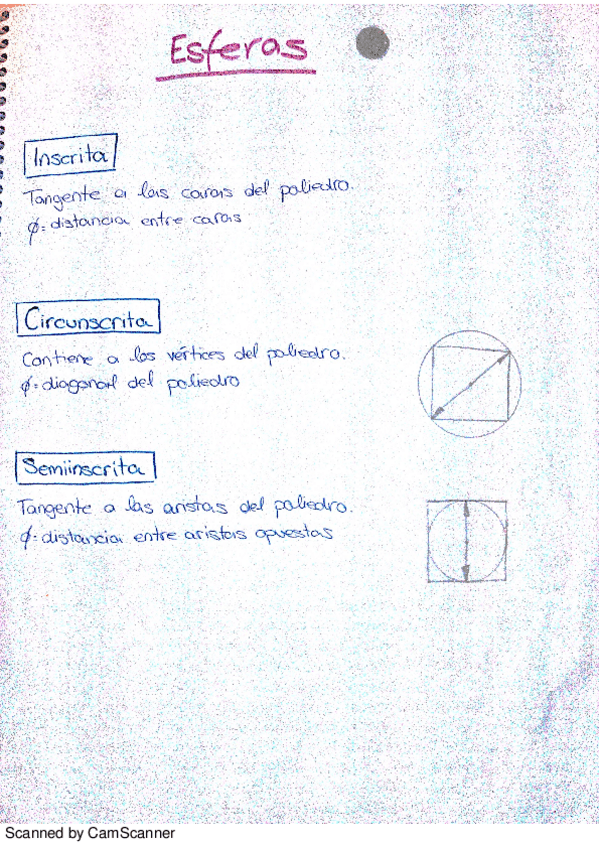 Esferas
Inscrita
Tangente a las caras del poliedro.
ϕ: distancia entre caras
Circunscrita
Contiene a los vértices del poliedro.
ϕ: diagonal del poliedro
Semiinscrita
Tangente a las aristas del poliedro.
ϕ: distancia entre aristas opuestas
Scanned by CamScanner